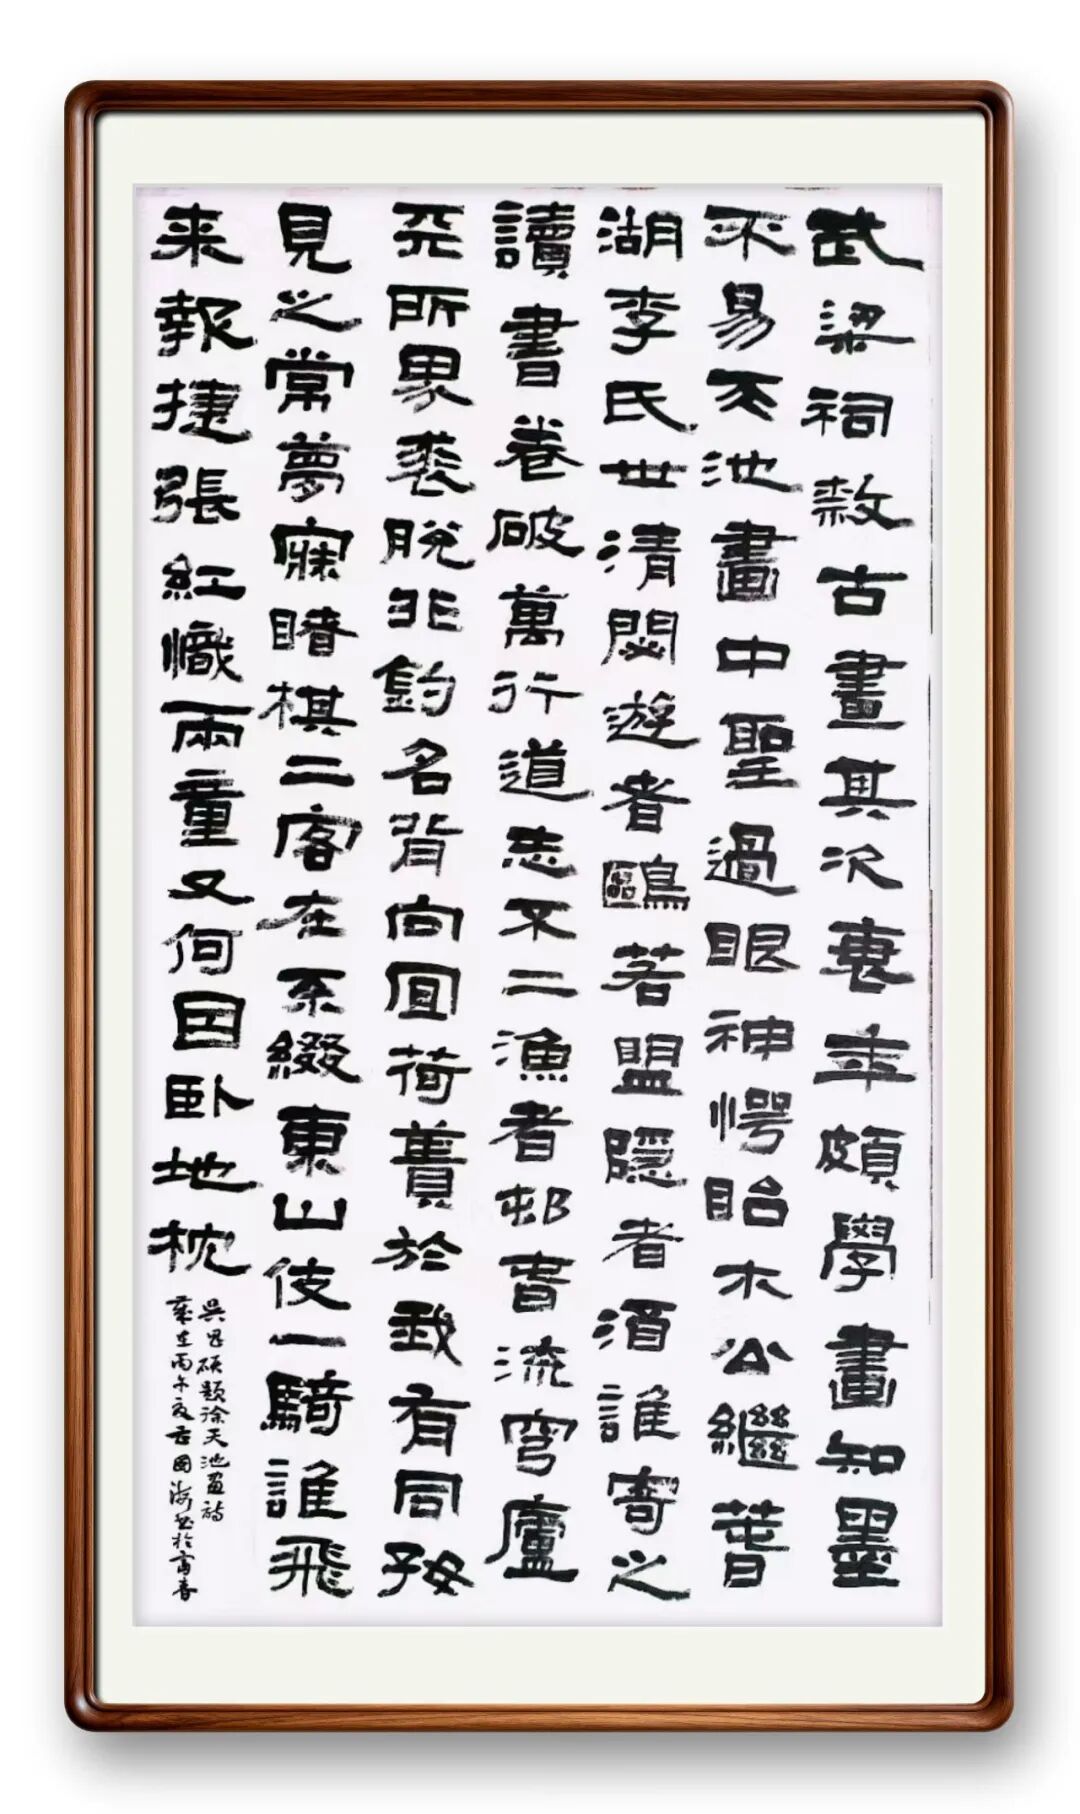 武梁祠敹古畫其次衷年頗學畫知墨
不易天池畫中聖過眼神愕眙木公繼昔
湖李氏世清閟遊者鷗若盟隱者酒誰寄之
讀書卷破萬行道志不二漁者邨書流穹廬
天所界裘脫非鈞名背向宜荷蕢於我有同好
見之常夢寐暗棋二客在系綴東山伎一騎誰飛
来報捷張紅幟兩童又何因卧地枕
吳昌碩題徐天池畫詩
歲在丙午夏 國海書於富春